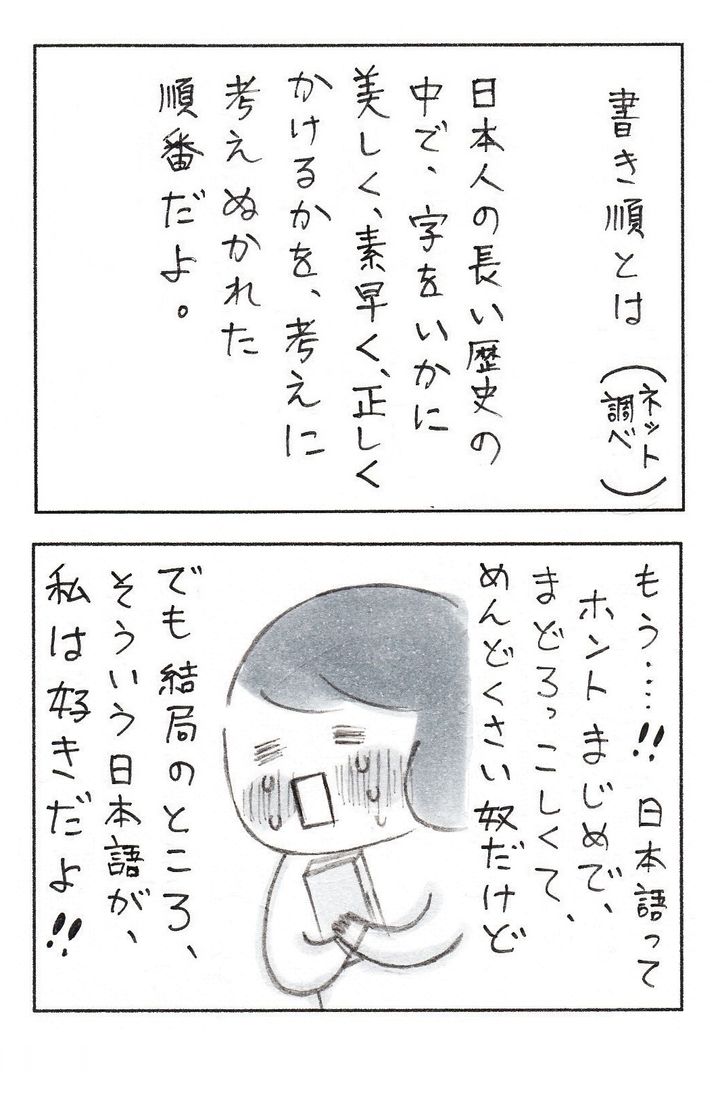 書き順とは
(ネット
調べ)
日本人の長い歴史の
中で、字をいかに
美しく、素早く、正しく
かけるかを、考えに
考えぬかれた
順番だよ。
もう…!! 日本語って
ホントまじめで、
まどろっこしくて、
めんどくさい奴だけど
でも結局のところ、
そういう日本語が、
私は好きだよ!!